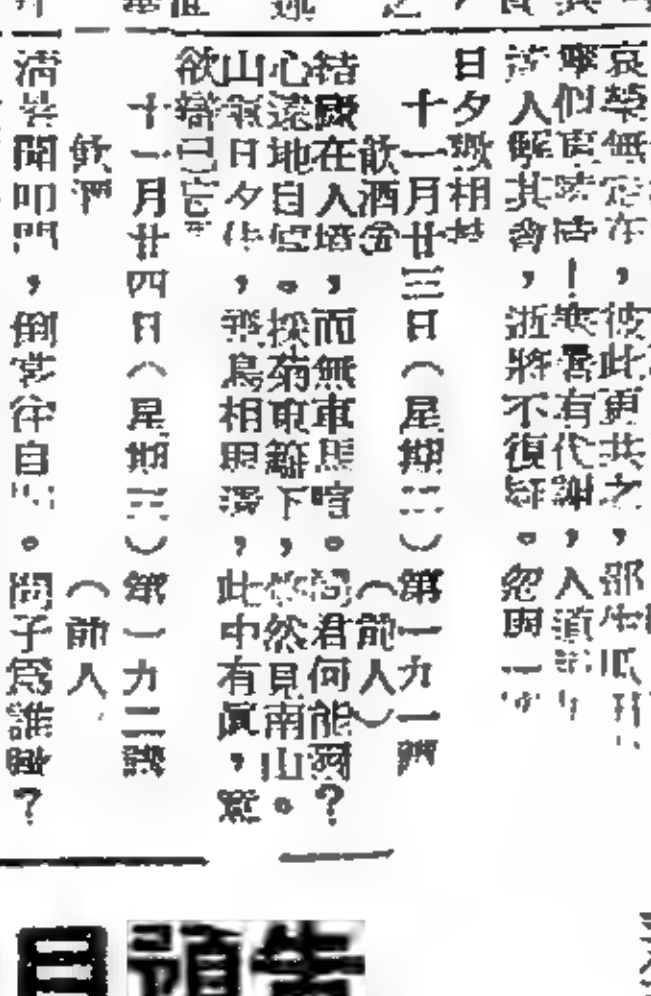 哀榮無定在，彼此更共之，邵生瓜田
寧似東陵時！寒暑有代謝，人道
達人解其會，逝將不復疑。忽與一
日夕歡相持
十一月廿三日（星期二）第一九一號
飲酒 （前人）
結廬在人境，而無車馬喧。問君何能爾？
心遠地自偏。採菊東籬下，悠然見南山。
山氣日夕佳，飛鳥相與還，此中有眞，
欲辯已忘
十一月廿四日（星期三）第一九二號
飲酒 （前人
清晨聞叩門，倒裳往自開。問子爲誰歟？
預告
目